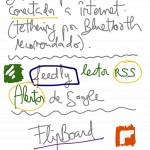 conectado a internet
(tethering por Bluetooth
recomendado).
feedly lector RSS
Alertas de Google
FlipBoard